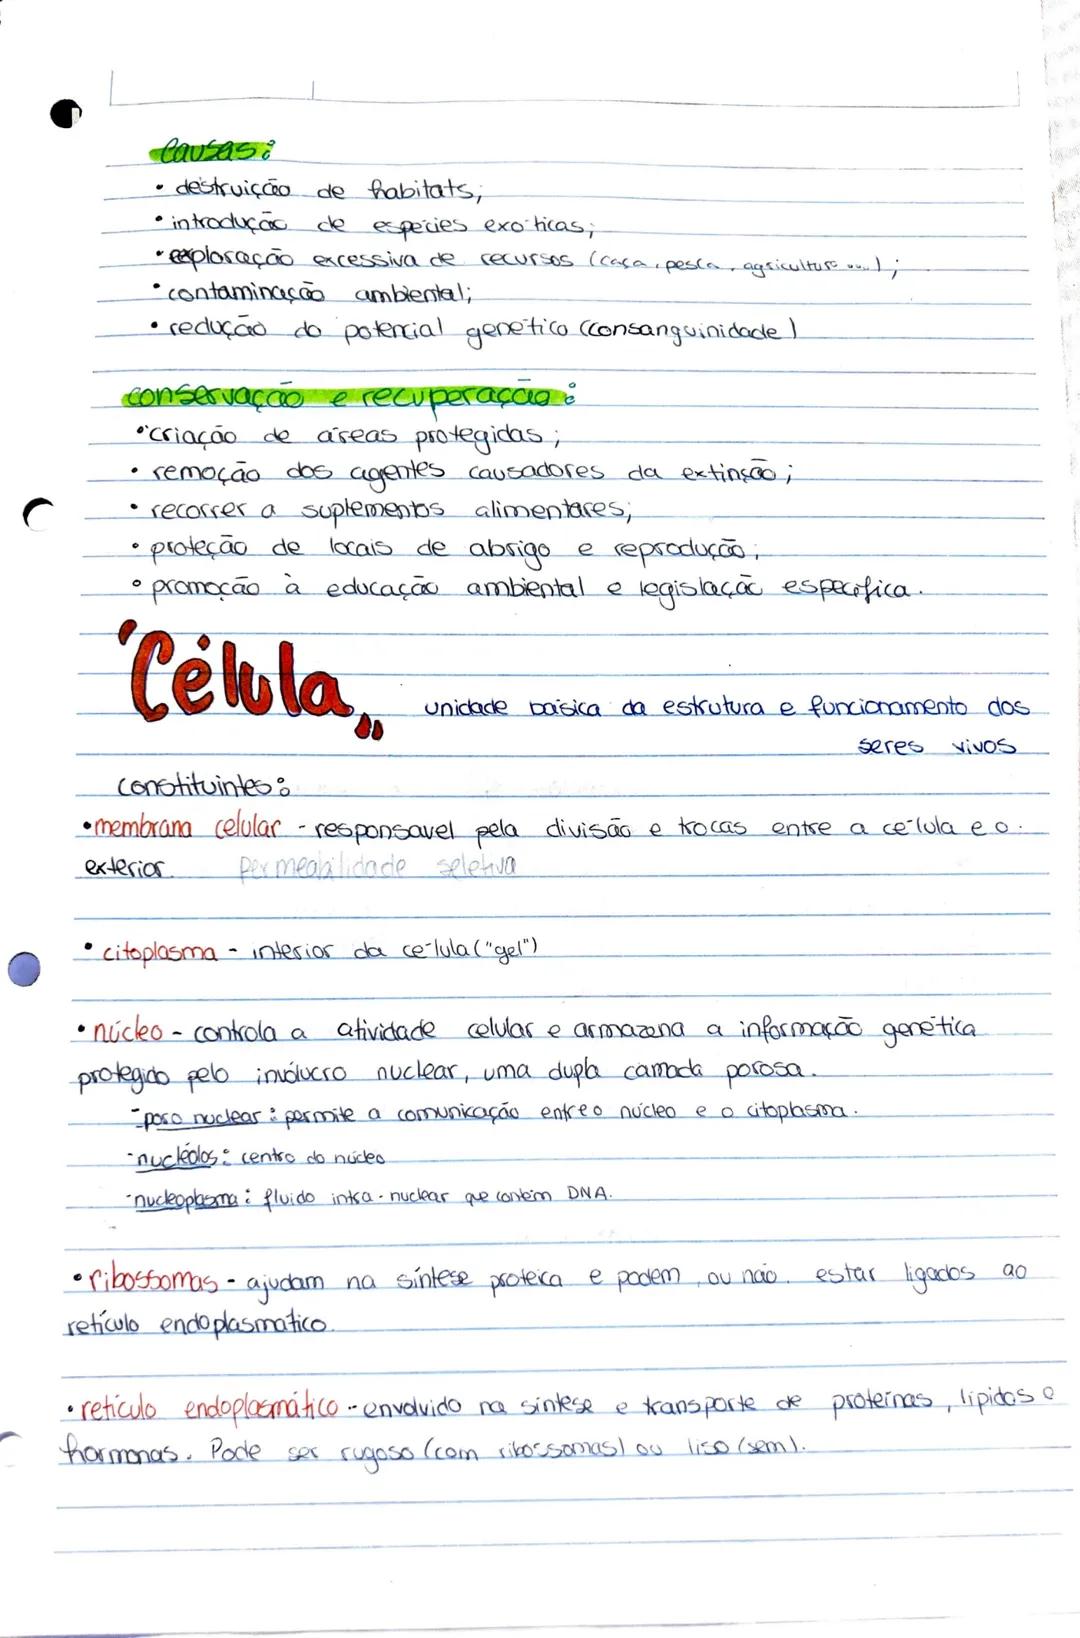 Causas:
• destruição de habitats;
• introdução de espécies exóticas;
• exploração excessiva de recursos (caça, pesca, agricultura ...);
• contaminação ambiental;
• redução do potencial genético (consanguinidade)
conservação e recuperação:
• criação de áreas protegidas;
• remoção dos agentes causadores da extinsão;
• recorrer a suplementos alimentares;
• proteção de locais de abrigo e reprodução;
• promoção à educação ambiental e legislação específica.
"Célula" unidade básica da estrutura e funcionamento dos
seres vivos
constituintes:
• membrana celular - responsavel pela divisão e trocas entre a célula e o
exterior. permeabilidade seletiva
• citoplasma - interior da célula ("gel")
• núcleo - controla a atividade celular e armazena a informação genética
protegido pelo invólucro nuclear, uma dupla camada porosa.
- poro nuclear: permite a comunicação entre o núcleo e o citoplasma.
- nucléolos: centro do núcleo
- nucleoplasma: fluido intra-nuclear que contém DNA.
• ribossomas - ajudam na síntese proteica e podem, ou não, estar ligados ao
retículo endoplasmatico.
• retículo endoplasmático - envolvido na síntese e transporte de proteínas, lipidos e
hormonas. Pode ser rugoso (com ribossomas) ou liso (sem).